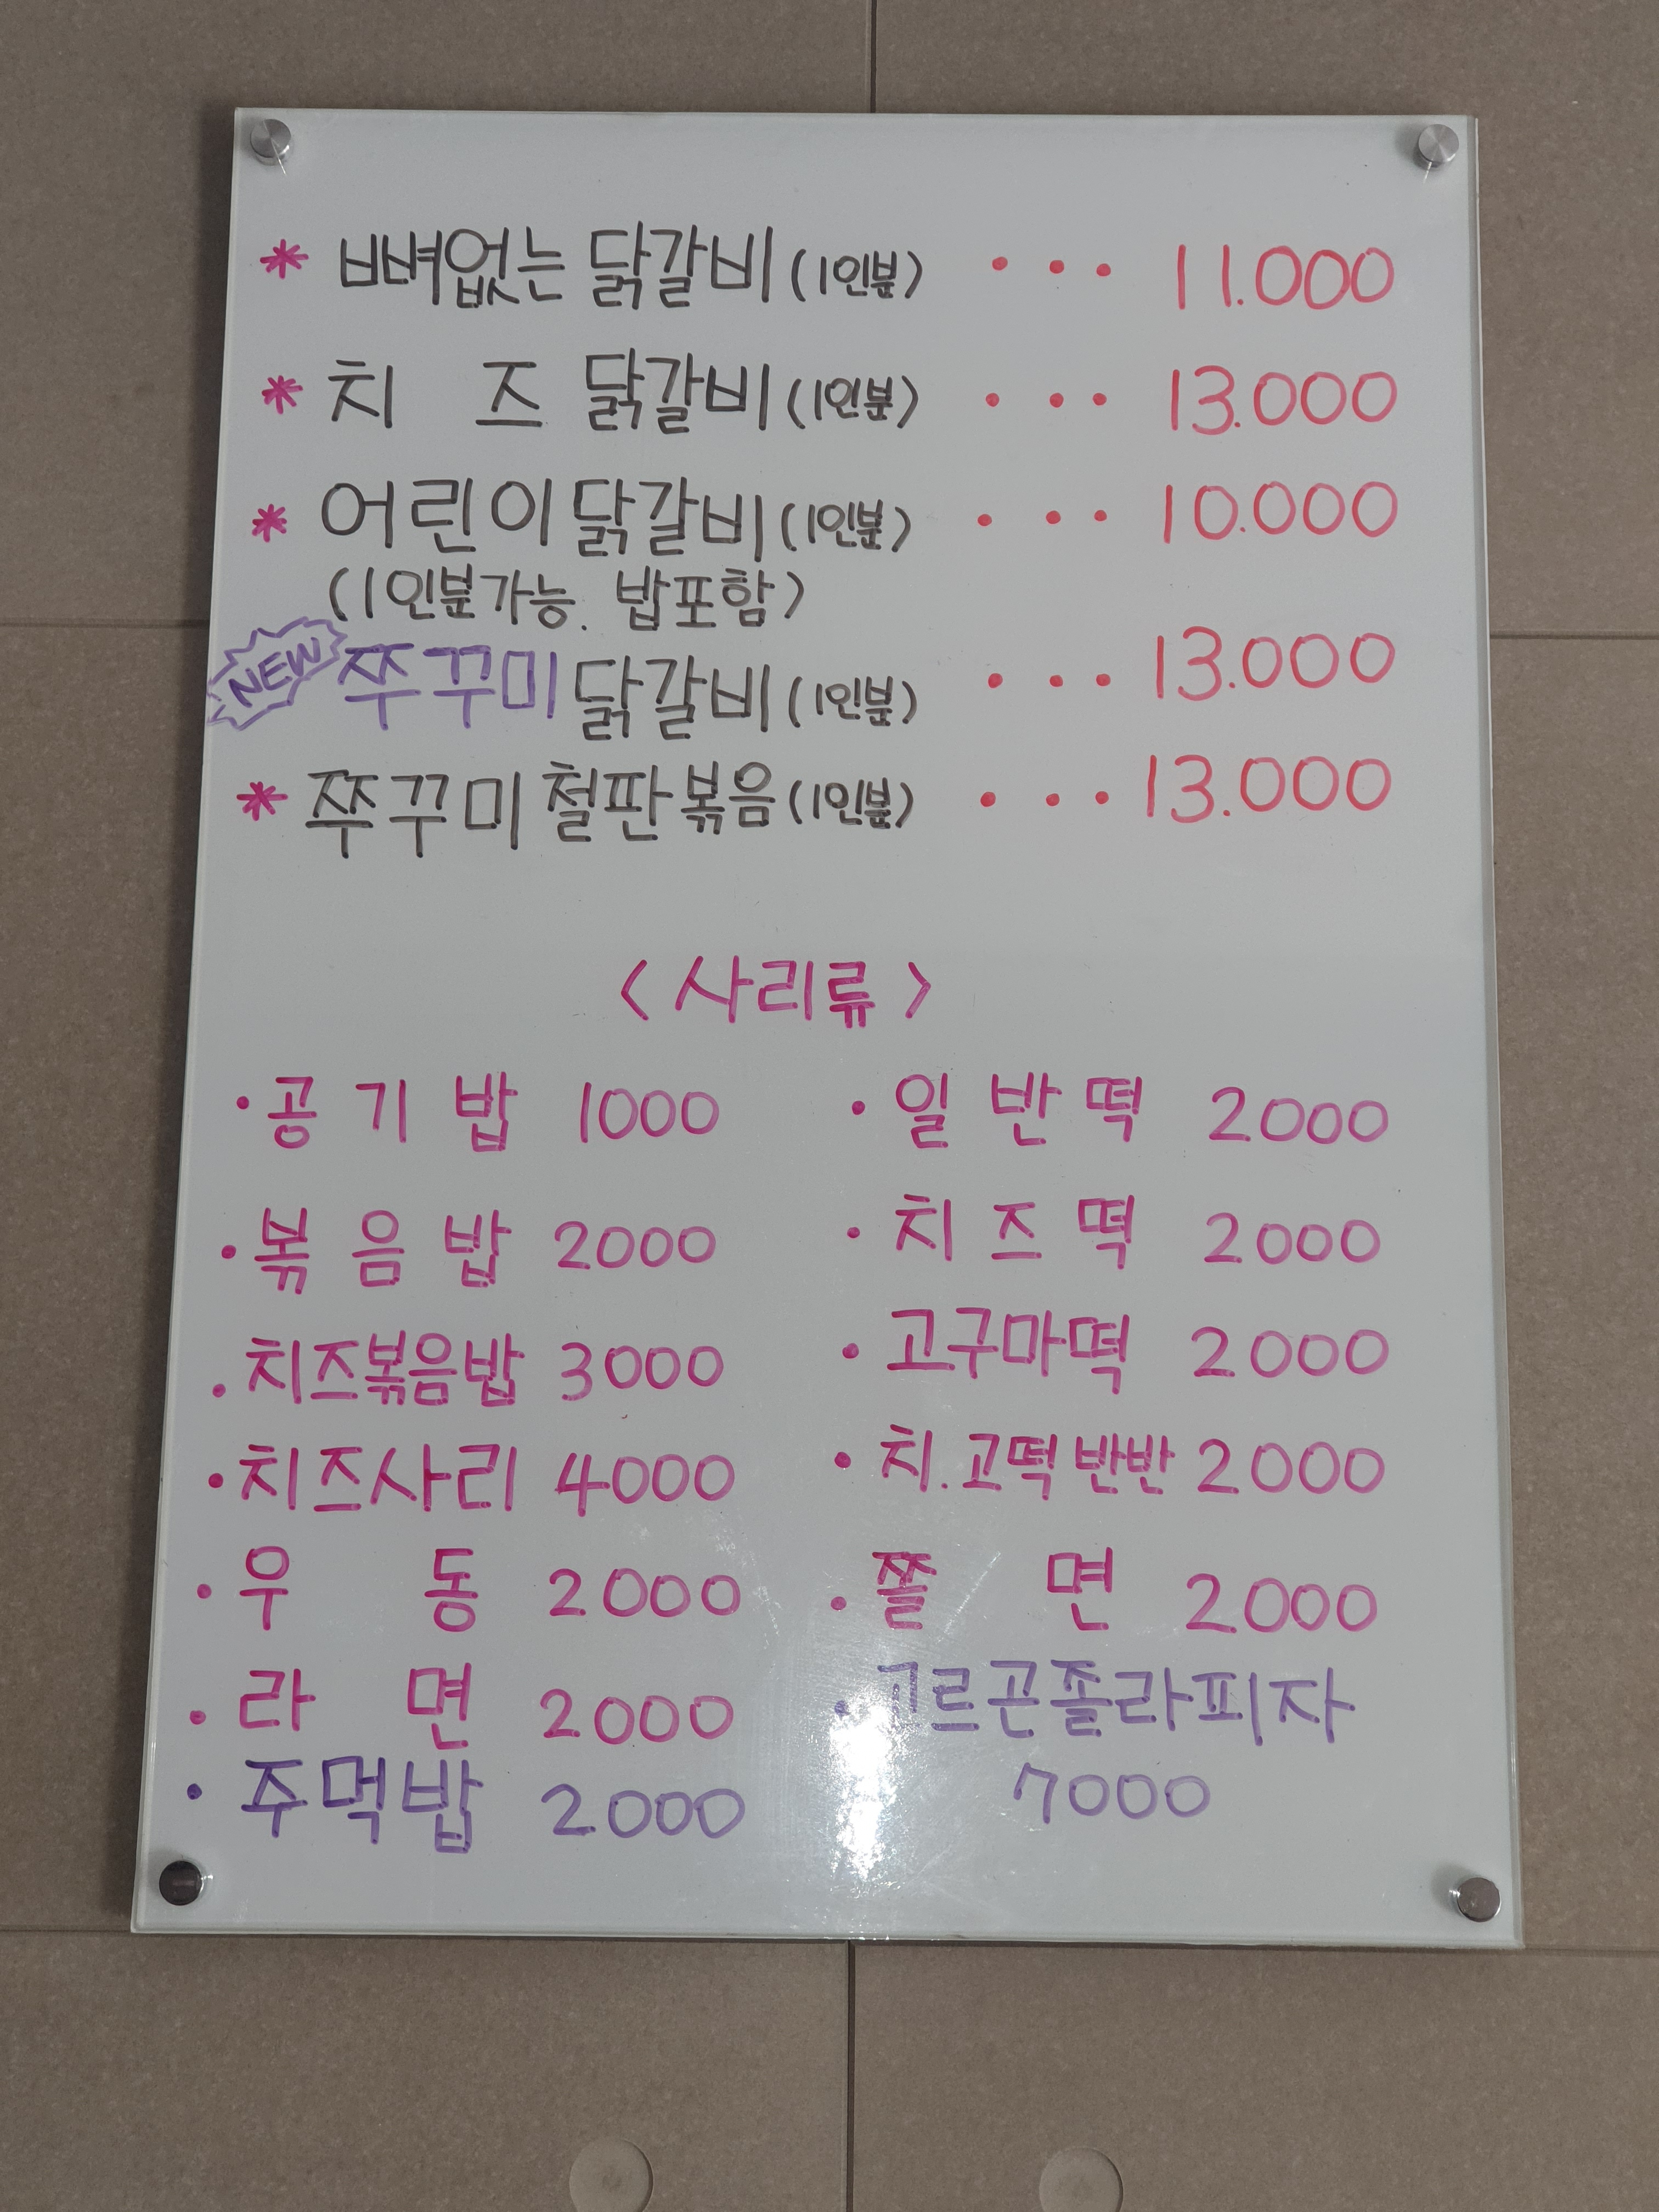 * 뼈없는 닭갈비 (1인분) ... 11.000
* 치 즈 닭갈비 (1인분) ... 13.000
* 어린이 닭갈비 (1인분) ... 10.000
(1인분가능. 밥포함)
NEW 쭈꾸미 닭갈비 (1인분) ... 13.000
* 쭈꾸미 철판볶음 (1인분) ... 13.000
< 사리류 >
· 공 기 밥 1000
· 볶 음 밥 2000
· 치즈볶음밥 3000
· 치즈사리 4000
· 우 동 2000
· 라 면 2000
· 주먹밥 2000
· 일 반 떡 2000
· 치 즈 떡 2000
· 고구마떡 2000
· 치.고떡 반반 2000
· 쫄 면 2000
· 고르곤졸라피자
7000